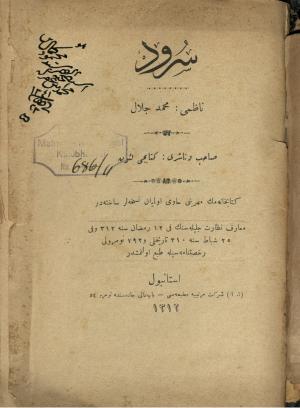 سرود
ناظمى: محمد جلال
صاحب و ناشرى: كتابجى
كتابخانه‌مك مهرينى حاوى اولميان نسخه‌لر ساخته‌در
معارف نظارت جليله‌سنك فى ١٢ رمضان سنه ٣١٢ وفى
٢٥ شباط سنه ٣١٠ تاريخلى و ٧٩٢ نومرولى
رخصتنامه‌سيله طبع اولنمشدر
استانبول
شركت مرتبيه مطبعه‌سى — باب‌عالى جاده‌سنده نومرو ٥٤
١٣١٢